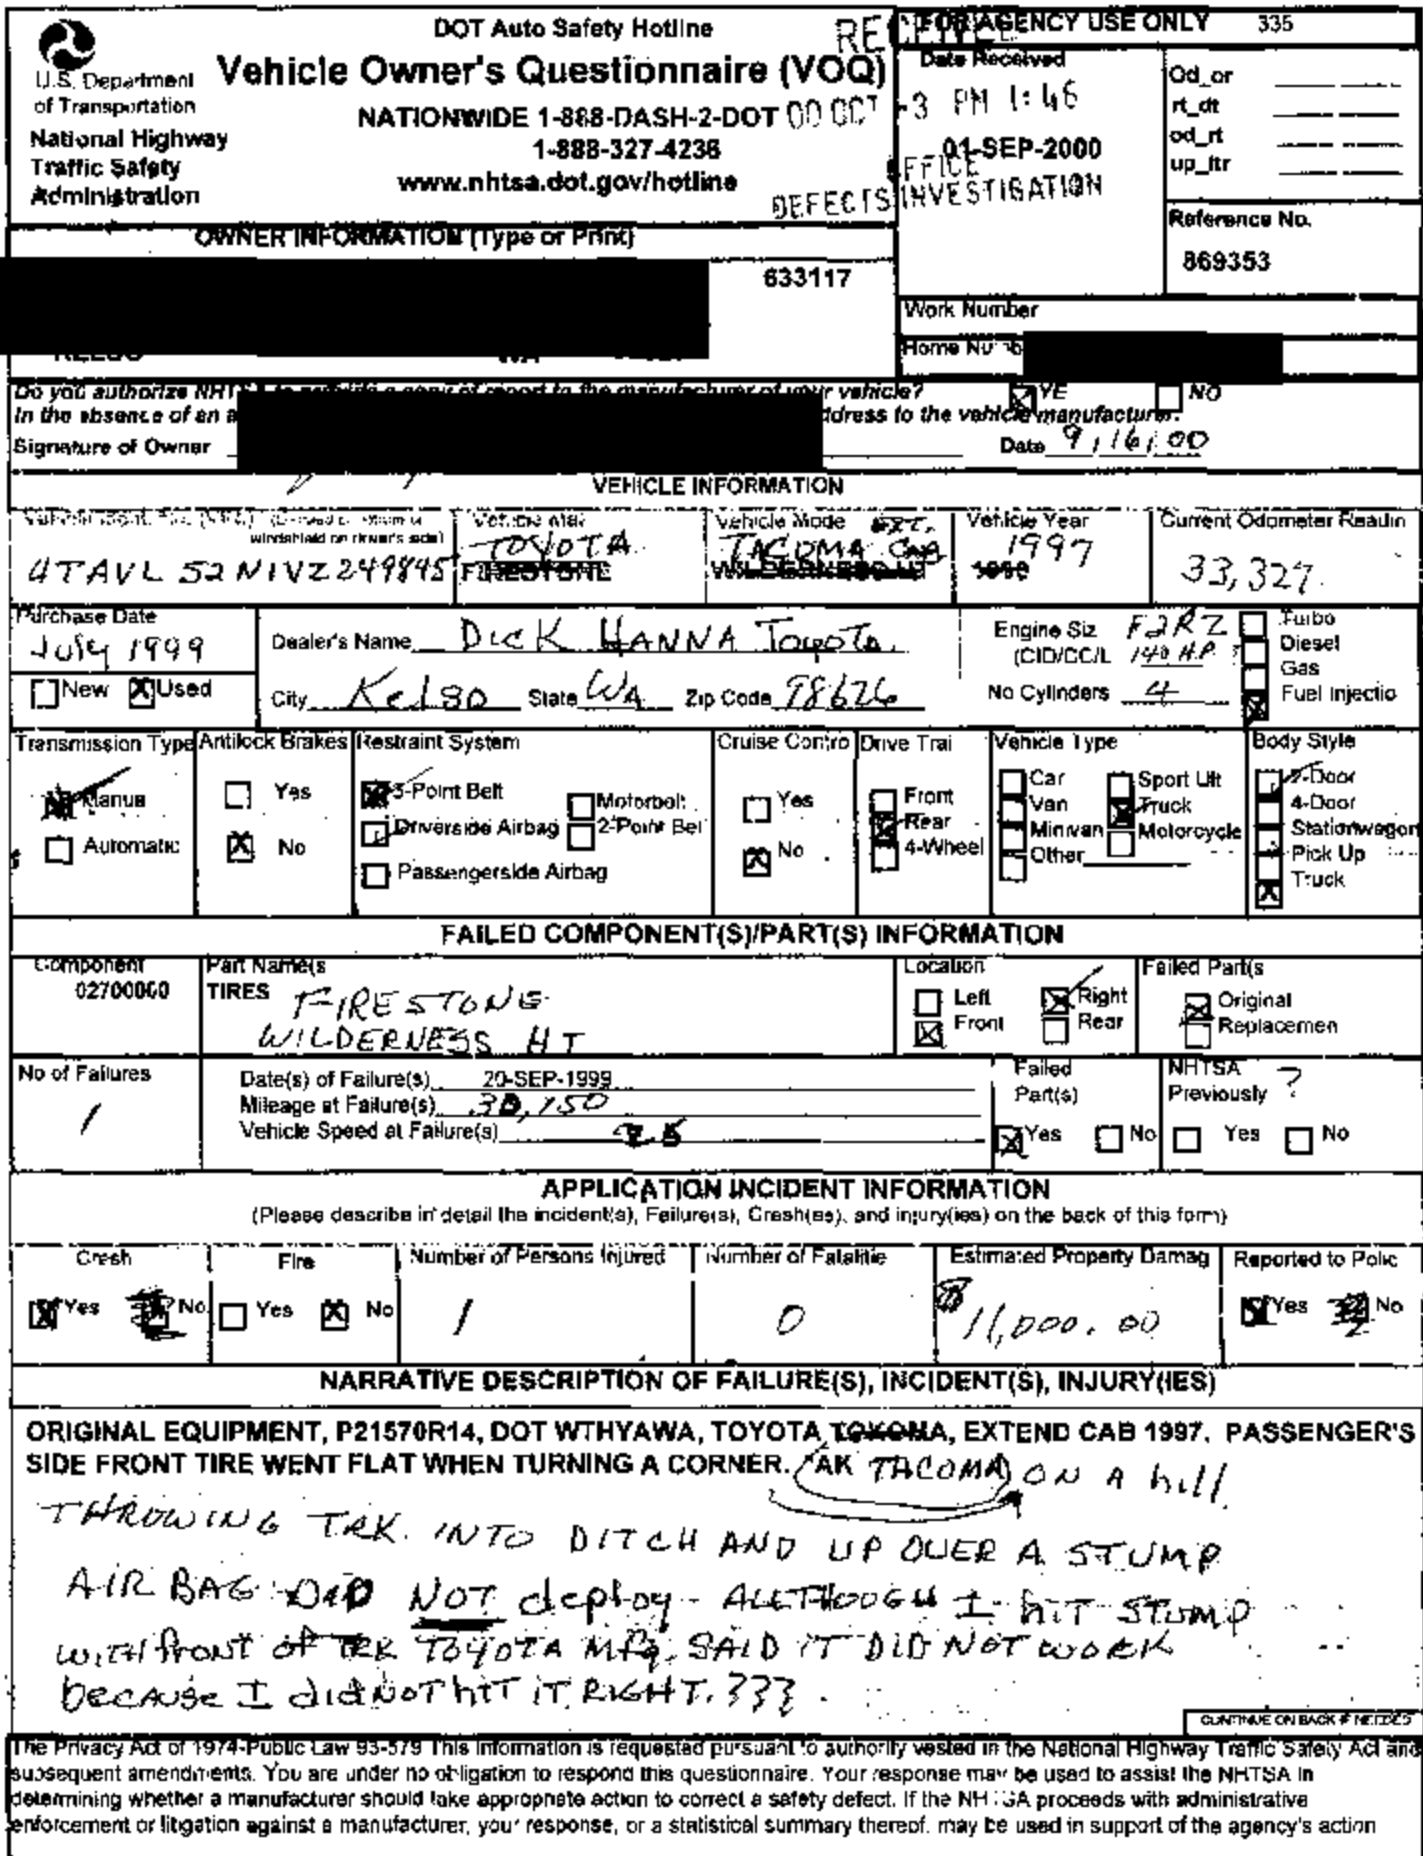 DOT Auto Safety Hotline
Vehicle Owner's Questionnaire (VOQ)
NATIONWIDE 1-888-DASH-2-DOT
1-888-327-4236
www.nhtsa.dot.gov/hotline
U.S. Department
of Transportation
National Highway
Traffic Safety
Administration
00 OCT -3 PM 1:46
OFFICE
DEFECTS INVESTIGATION
FOR AGENCY USE ONLY 335
Date Received
01-SEP-2000
Od_or
rt_dt
od_rt
up_ltr
Reference No.
869353
OWNER INFORMATION (Type or Print)
633117
Work Number
Home Numb
Do you authorize NHT to provide a copy of report to the manufacturer of your vehicle? YE NO
In the absence of an a ddress to the vehicle manufacturer.
Signature of Owner Date 9/16/00
VEHICLE INFORMATION
windshield on driver's side)
4TAVL52N1VZ249845
Vehicle Mak
TOYOTA
FIRESTONE
Vehicle Mode EXT.
TACOMA CAB
WILDERNESS HT
Vehicle Year
1997
Current Odometer Readin
33,327.
Purchase Date
July 1999
New Used
Dealer's Name DICK HANNA Toyota
City Kelso State WA Zip Code 98626
Engine Siz
(CID/CC/L 140 H.P.
No Cylinders 4
Turbo
Diesel
Gas
Fuel Injectio
Transmission Type
Manua
Automatic
Antilock Brakes
Yes
No
Restraint System
3-Point Belt Motorbelt
Driverside Airbag 2-Point Bel
Passengerside Airbag
Cruise Contro
Yes
No
Drive Trai
Front
Rear
4-Wheel
Vehicle Type
Car Sport Ult
Van Truck
Minivan Motorcycle
Other
Body Style
2-Door
4-Door
Stationwagon
Pick Up
Truck
FAILED COMPONENT(S)/PART(S) INFORMATION
Component
02700000
Part Name(s
TIRES FIRESTONE
WILDERNESS HT
Location
Left Right
Front Rear
Failed Part(s
Original
Replacemen
No of Failures
1
Date(s) of Failure(s) 20-SEP-1999
Mileage at Failure(s) 30,150
Vehicle Speed at Failure(s) 25
Failed
Part(s)
Yes No
NHTSA
Previously ?
Yes No
APPLICATION INCIDENT INFORMATION
(Please describe in detail the incident(s), Failure(s), Crash(es), and injury(ies) on the back of this form)
Crash
Yes No
Fire
Yes No
Number of Persons Injured
1
Number of Fatalitie
0
Estimated Property Damag
$11,000.00
Reported to Polic
Yes No
NARRATIVE DESCRIPTION OF FAILURE(S), INCIDENT(S), INJURY(IES)
ORIGINAL EQUIPMENT, P21570R14, DOT WTHYAWA, TOYOTA TOKOMA, EXTEND CAB 1997. PASSENGER'S
SIDE FRONT TIRE WENT FLAT WHEN TURNING A CORNER. *AK TACOMA ON A hill
THROWING TRK. INTO DITCH AND UP OVER A STUMP
AIR BAG DID NOT deploy - ALLTHOUGH I hIT STUMP
WITH front OF TRK TOYOTA MFg. SAID IT DID NOT WORK
because I did NOT hIT IT RIGHT. ???
CONTINUE ON BACK IF NEEDED
The Privacy Act of 1974-Public Law 93-579 This information is requested pursuant to authority vested in the National Highway Traffic Safety Act and
subsequent amendments. You are under no obligation to respond this questionnaire. Your response may be used to assist the NHTSA in
determining whether a manufacturer should take appropriate action to correct a safety defect. If the NHTSA proceeds with administrative
enforcement or litigation against a manufacturer, your response, or a statistical summary thereof, may be used in support of the agency's action